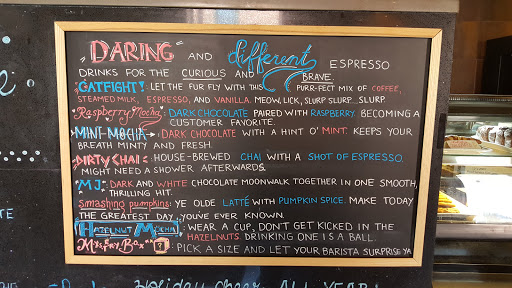 "DARING" AND different ESPRESSO
DRINKS FOR THE CURIOUS AND BRAVE.
CATFIGHT! LET THE FUR FLY WITH THIS PURR-FECT MIX OF COFFEE,
STEAMED MILK, ESPRESSO, AND VANILLA. MEOW, LICK, SLURP SLURP... SLURP
Raspberry Mocha: DARK CHOCOLATE PAIRED WITH RASPBERRY BECOMING A
CUSTOMER FAVORITE.
MINT MOCHA → DARK CHOCOLATE WITH A HINT O' MINT. KEEPS YOUR
BREATH MINTY AND FRESH.
DIRTY CHAI: HOUSE-BREWED CHAI WITH A SHOT OF ESPRESSO.
MIGHT NEED A SHOWER AFTERWARDS.
M.J.: DARK AND WHITE CHOCOLATE MOONWALK TOGETHER IN ONE SMOOTH,
THRILLING HIT.
Smashing pumpkins: YE OLDE LATTÉ WITH PUMPKIN SPICE. MAKE TODAY
THE GREATEST DAY YOU'VE EVER KNOWN.
HAZELNUT MOCHA: WEAR A CUP, DON'T GET KICKED IN THE
HAZELNUTS. DRINKING ONE IS A BALL.
MYSTERY BOX "?": PICK A SIZE AND LET YOUR BARISTA SURPRISE YA
Holiday cheer ALL YEAR!